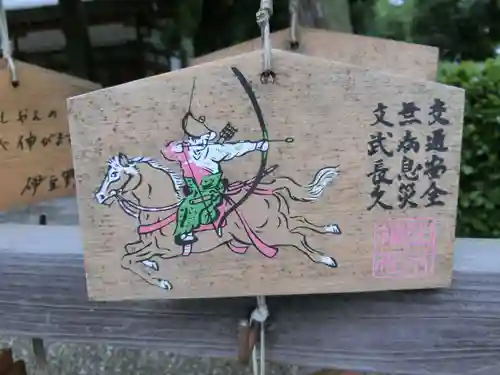 交通安全
無病息災
文武長久
しゃんの
伸がま
伊豆野